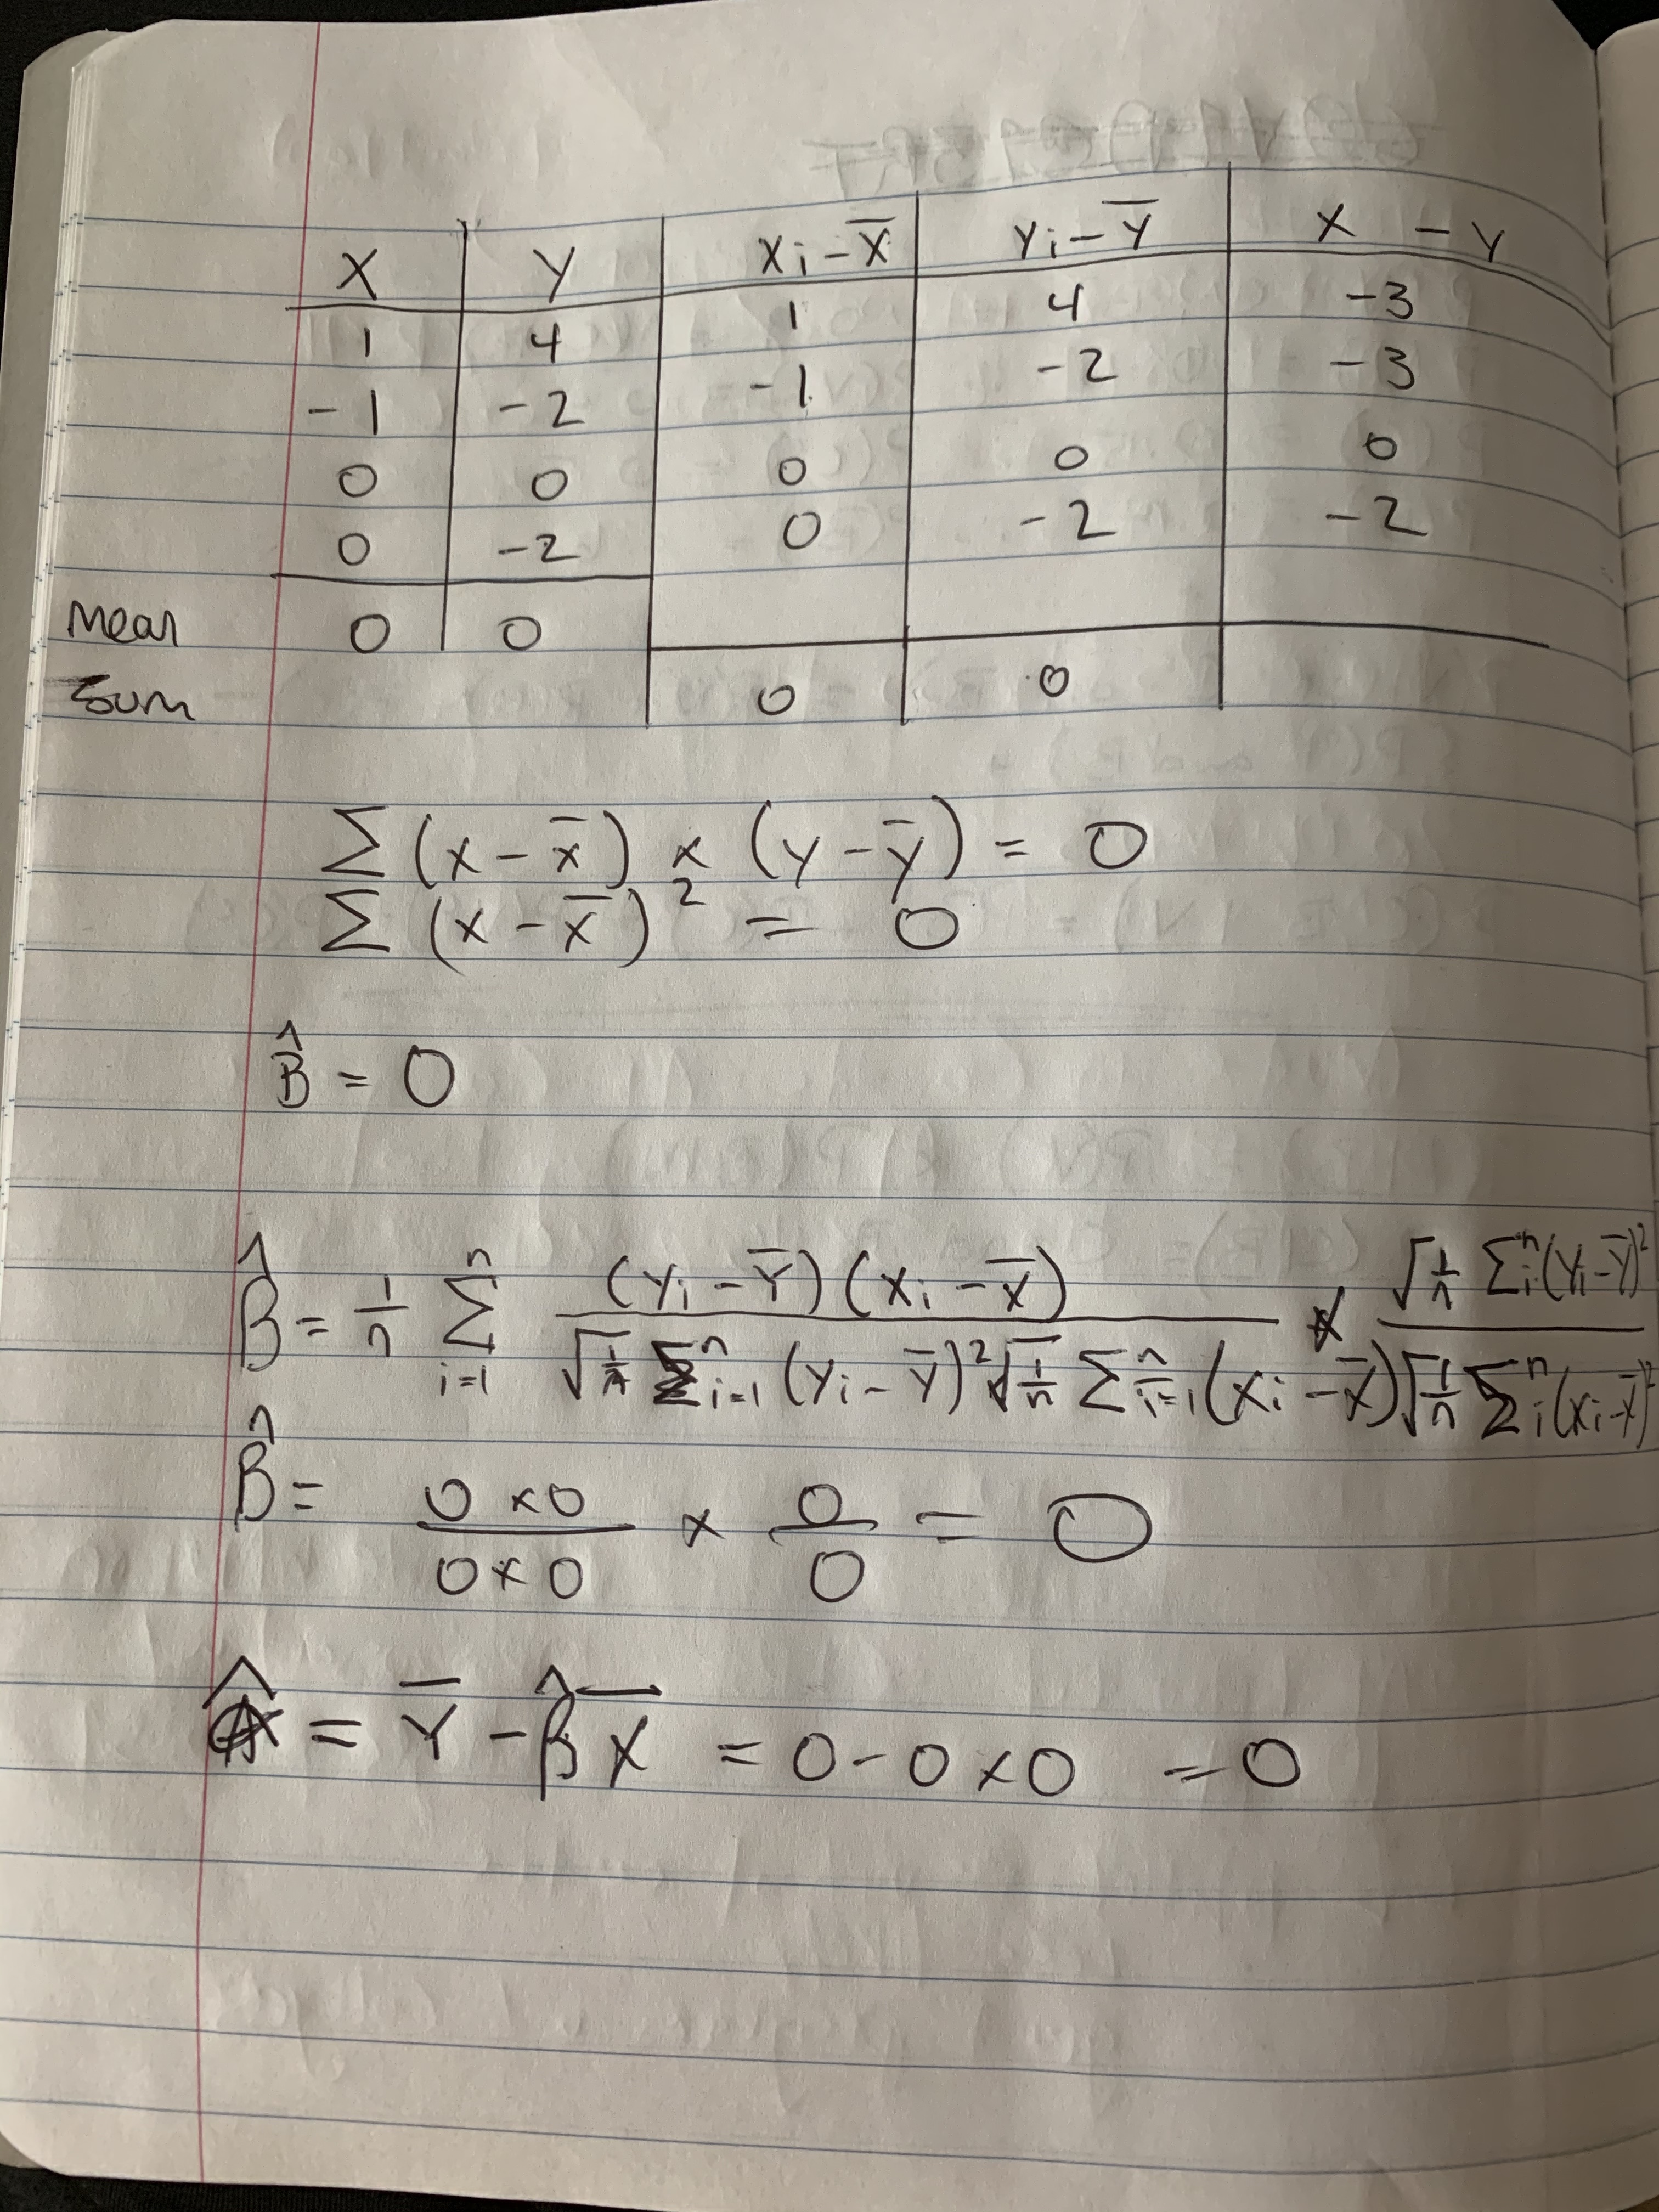 X Y Xi-X̄ Yi-Ȳ X -Y
1 4 1 4 -3
-1 -2 -1 -2 -3
0 0 0 0 0
0 -2 0 -2 -2
Mean 0 0
Sum 0 0
Σ(x-x̄) x (y-ȳ) = 0
Σ(x-x̄)² = 0
B̂ = 0
B̂ = 1/n Σ i=1 n (Yi-Ȳ)(Xi-X̄) / √1/n Σ i=1 n (Yi-Ȳ)² √1/n Σ i=1 n (Xi-X̄) x √1/n Σ i n (Yi-Ȳ)² / √1/n Σ i n (Xi-X̄)²
B̂ = 0x0 / 0x0 x 0/0 = 0
= Ȳ - β̂X̄ = 0-0x0 = 0